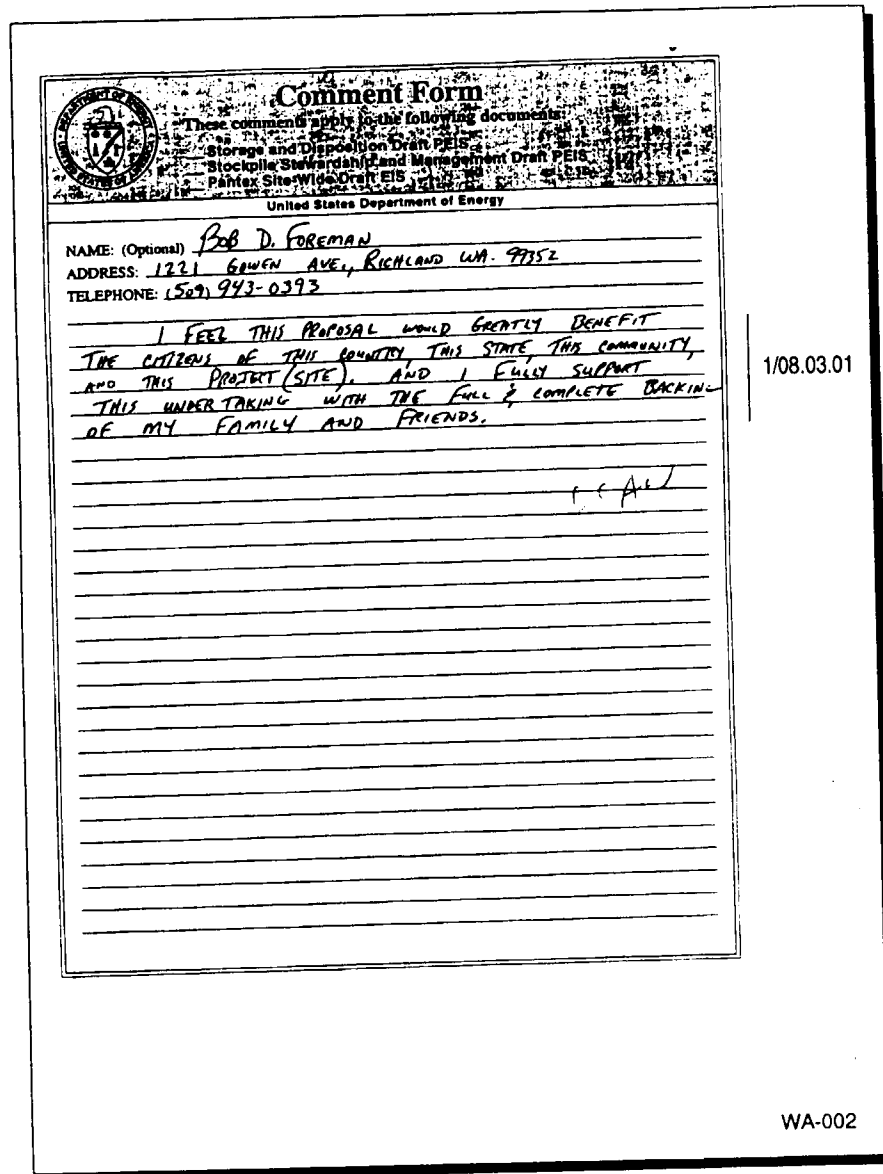 Comment Form
These comments apply to the following documents:
Storage and Disposition Draft PEIS
Stockpile Stewardship and Management Draft PEIS
Pantex Site-Wide Draft EIS
United States Department of Energy
NAME: (Optional) BOB D. FOREMAN
ADDRESS: 1221 GOWEN AVE., RICHLAND WA. 99352
TELEPHONE: (509) 943-0393
I FEEL THIS PROPOSAL WOULD GREATLY BENEFIT
THE CITIZENS OF THIS COUNTRY, THIS STATE, THIS COMMUNITY,
AND THIS PROJECT (SITE). AND I FULLY SUPPORT
THIS UNDER TAKING WITH THE FULL & COMPLETE BACKING
OF MY FAMILY AND FRIENDS.
1/08.03.01
WA-002